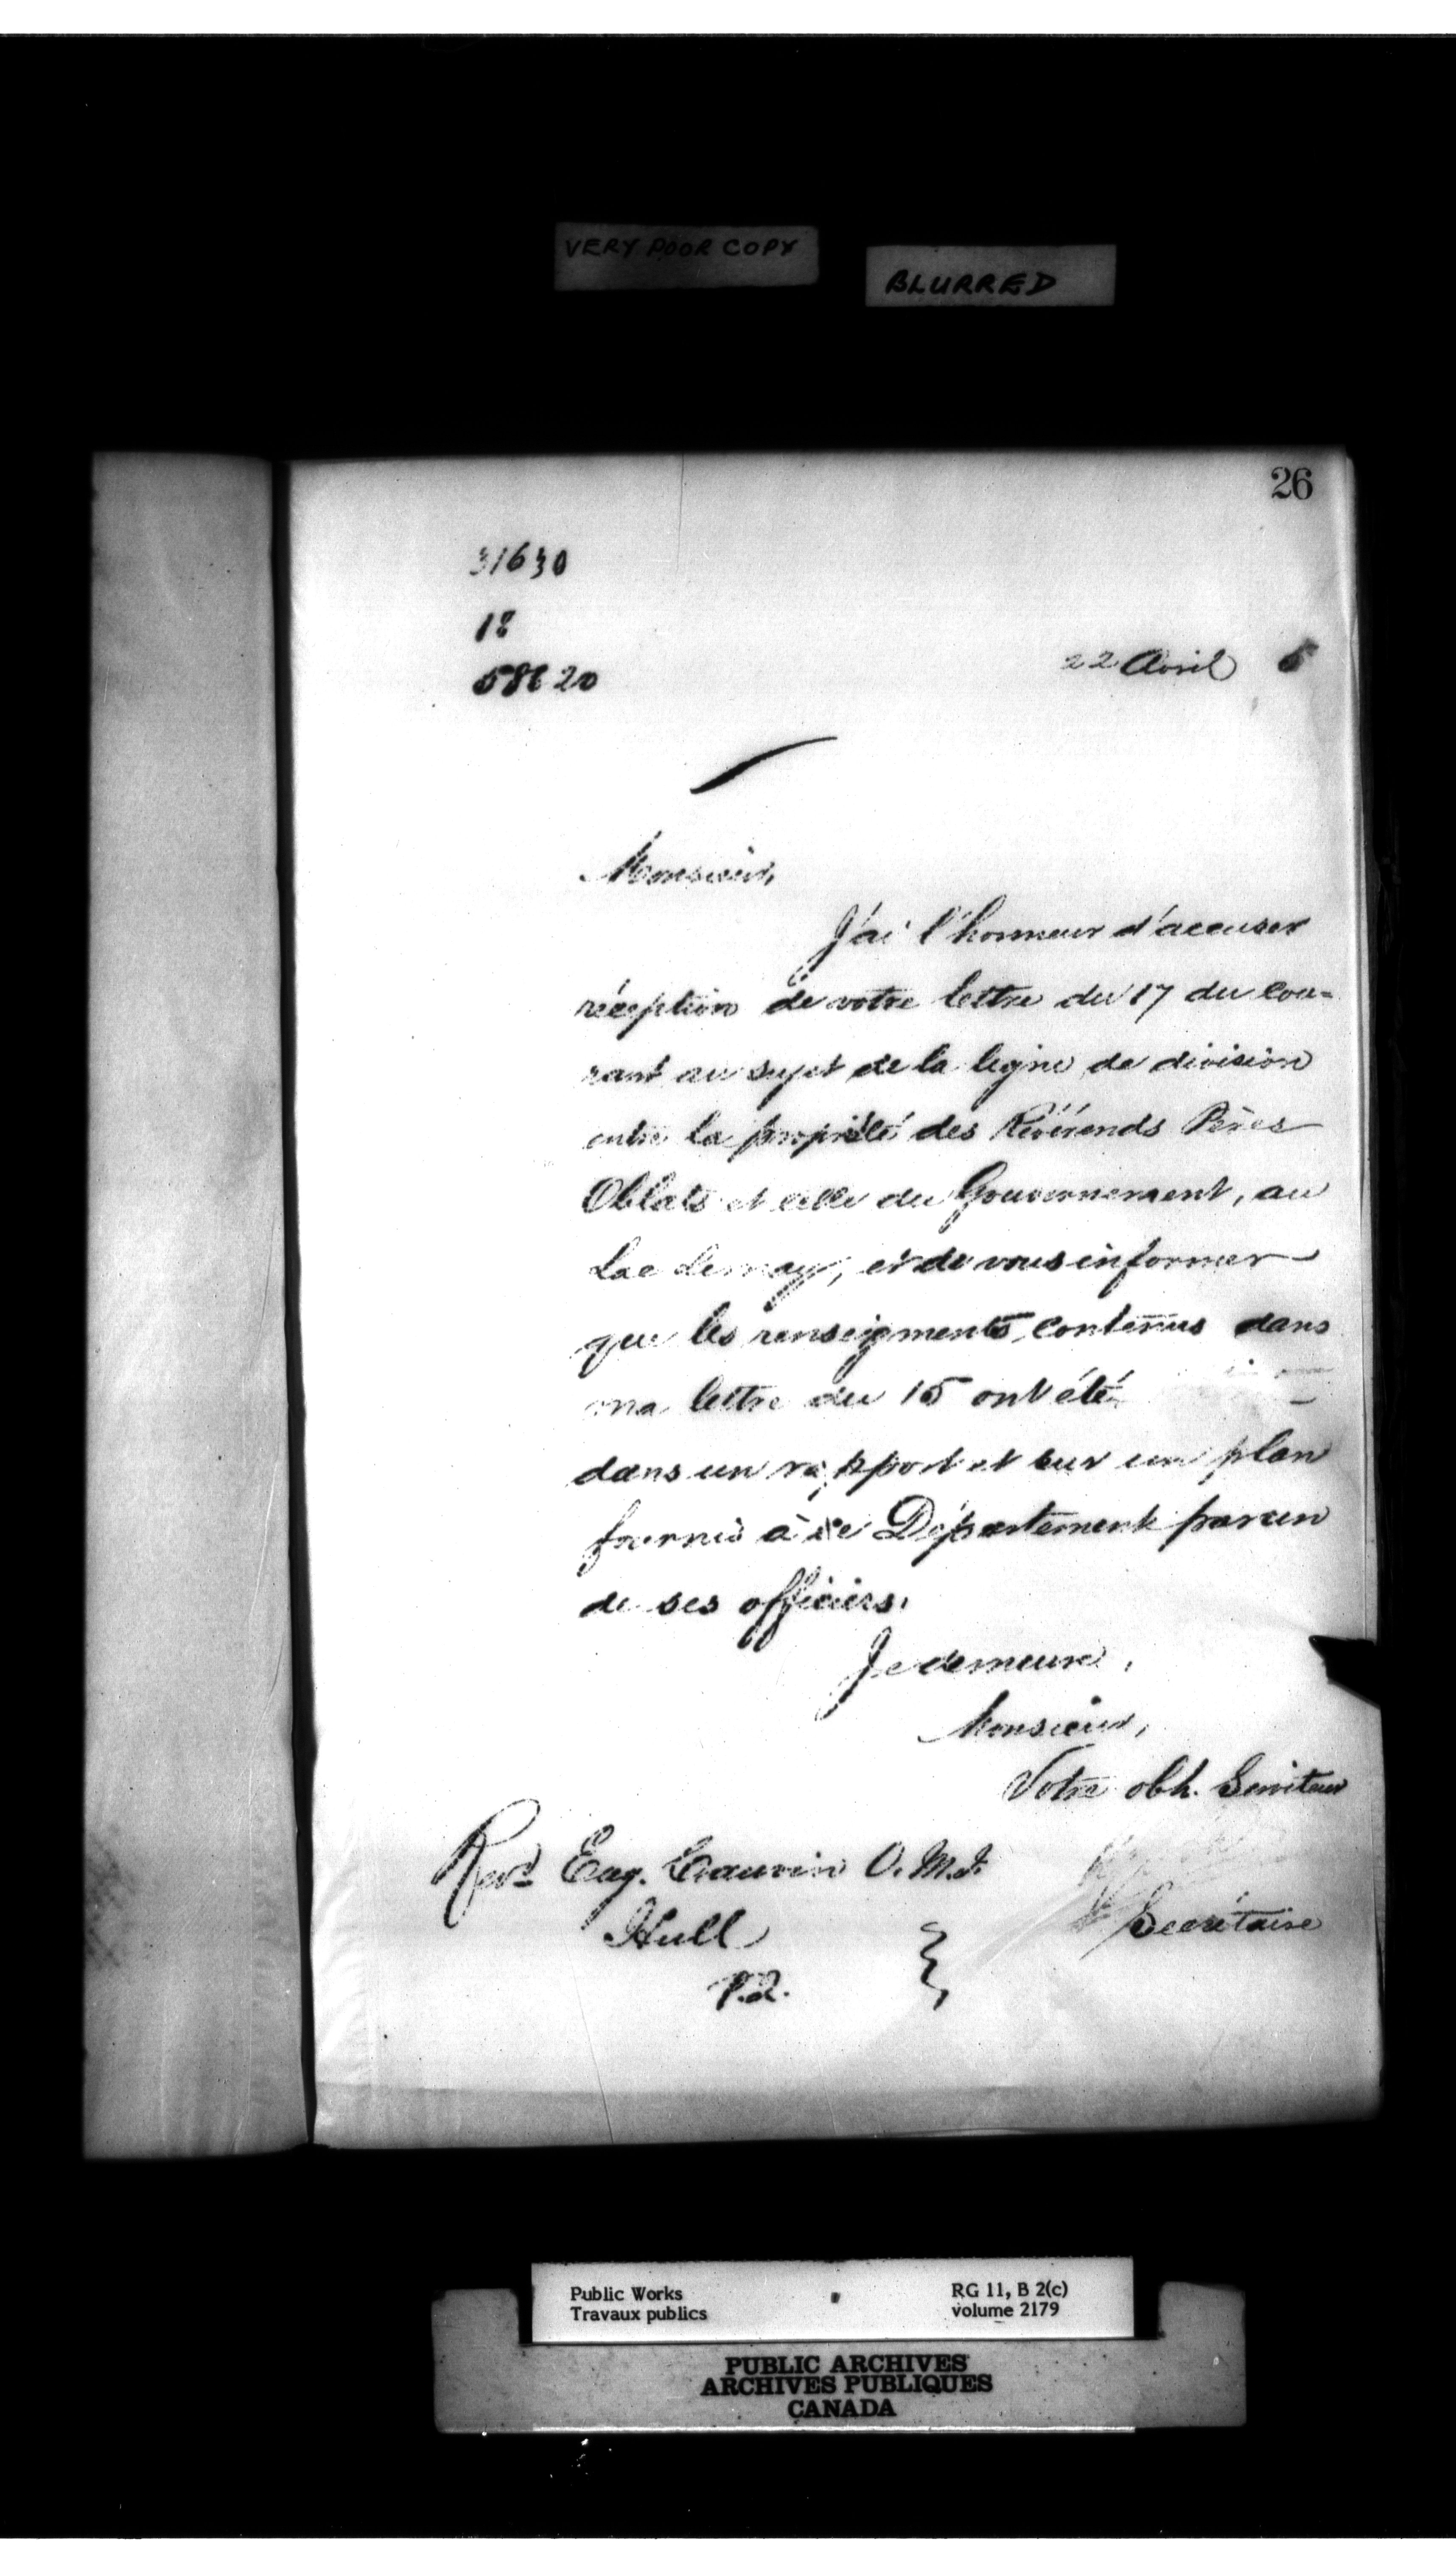 VERY POOR COPY
BLURRED
26
31630
18
58620
22 Avril 5
Monsieur,
J'ai l'honneur d'accuser
réception de votre lettre du 17 du cou-
rant au sujet de la ligne de division
entre la propriété des Révérends Pères
Oblats et celle du Gouvernement, au
Lac Lemay, et de vous informer
que les renseignements contenus dans
ma lettre du 15 ont été
dans un rapport et sur un plan
fournis à ce Département par un
de ses officiers.
Je demeure,
Monsieur,
Votre obt. Serviteur
Revd Eug. O. M. I.
Secrétaire
Hull
P.Q.
Public Works
Travaux publics
RG 11, B 2(c)
volume 2179
PUBLIC ARCHIVES
ARCHIVES PUBLIQUES
CANADA